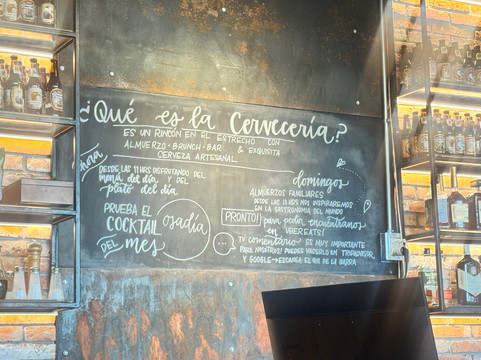 ¿Qué es la Cervecería?
ES UN RINCÓN EN EL ESTRECHO CON
ALMUERZO · BRUNCH · BAR & EXQUISITA
CERVEZA ARTESANAL
Ahora
DESDE LAS 11 HRS DISFRUTANDO DEL
menú del día, Y DEL
plato del día
PRUEBA EL
COCKTAIL
DEL mes
osadía
domingos
ALMUERZOS FAMILIARES
DESDE LAS 11 HRS NOS INSPIRAREMOS
EN LA GASTRONOMÍA DEL MUNDO
PRONTO!! para poder encuentrarnos
en UBEREATS!
TU comentario ES MUY IMPORTANTE
PARA NOSOTROS! PUEDES HACERLO EN TRIPADVISOR
Y GOOGLE → ESCANEA EL QR DE LA BARRA